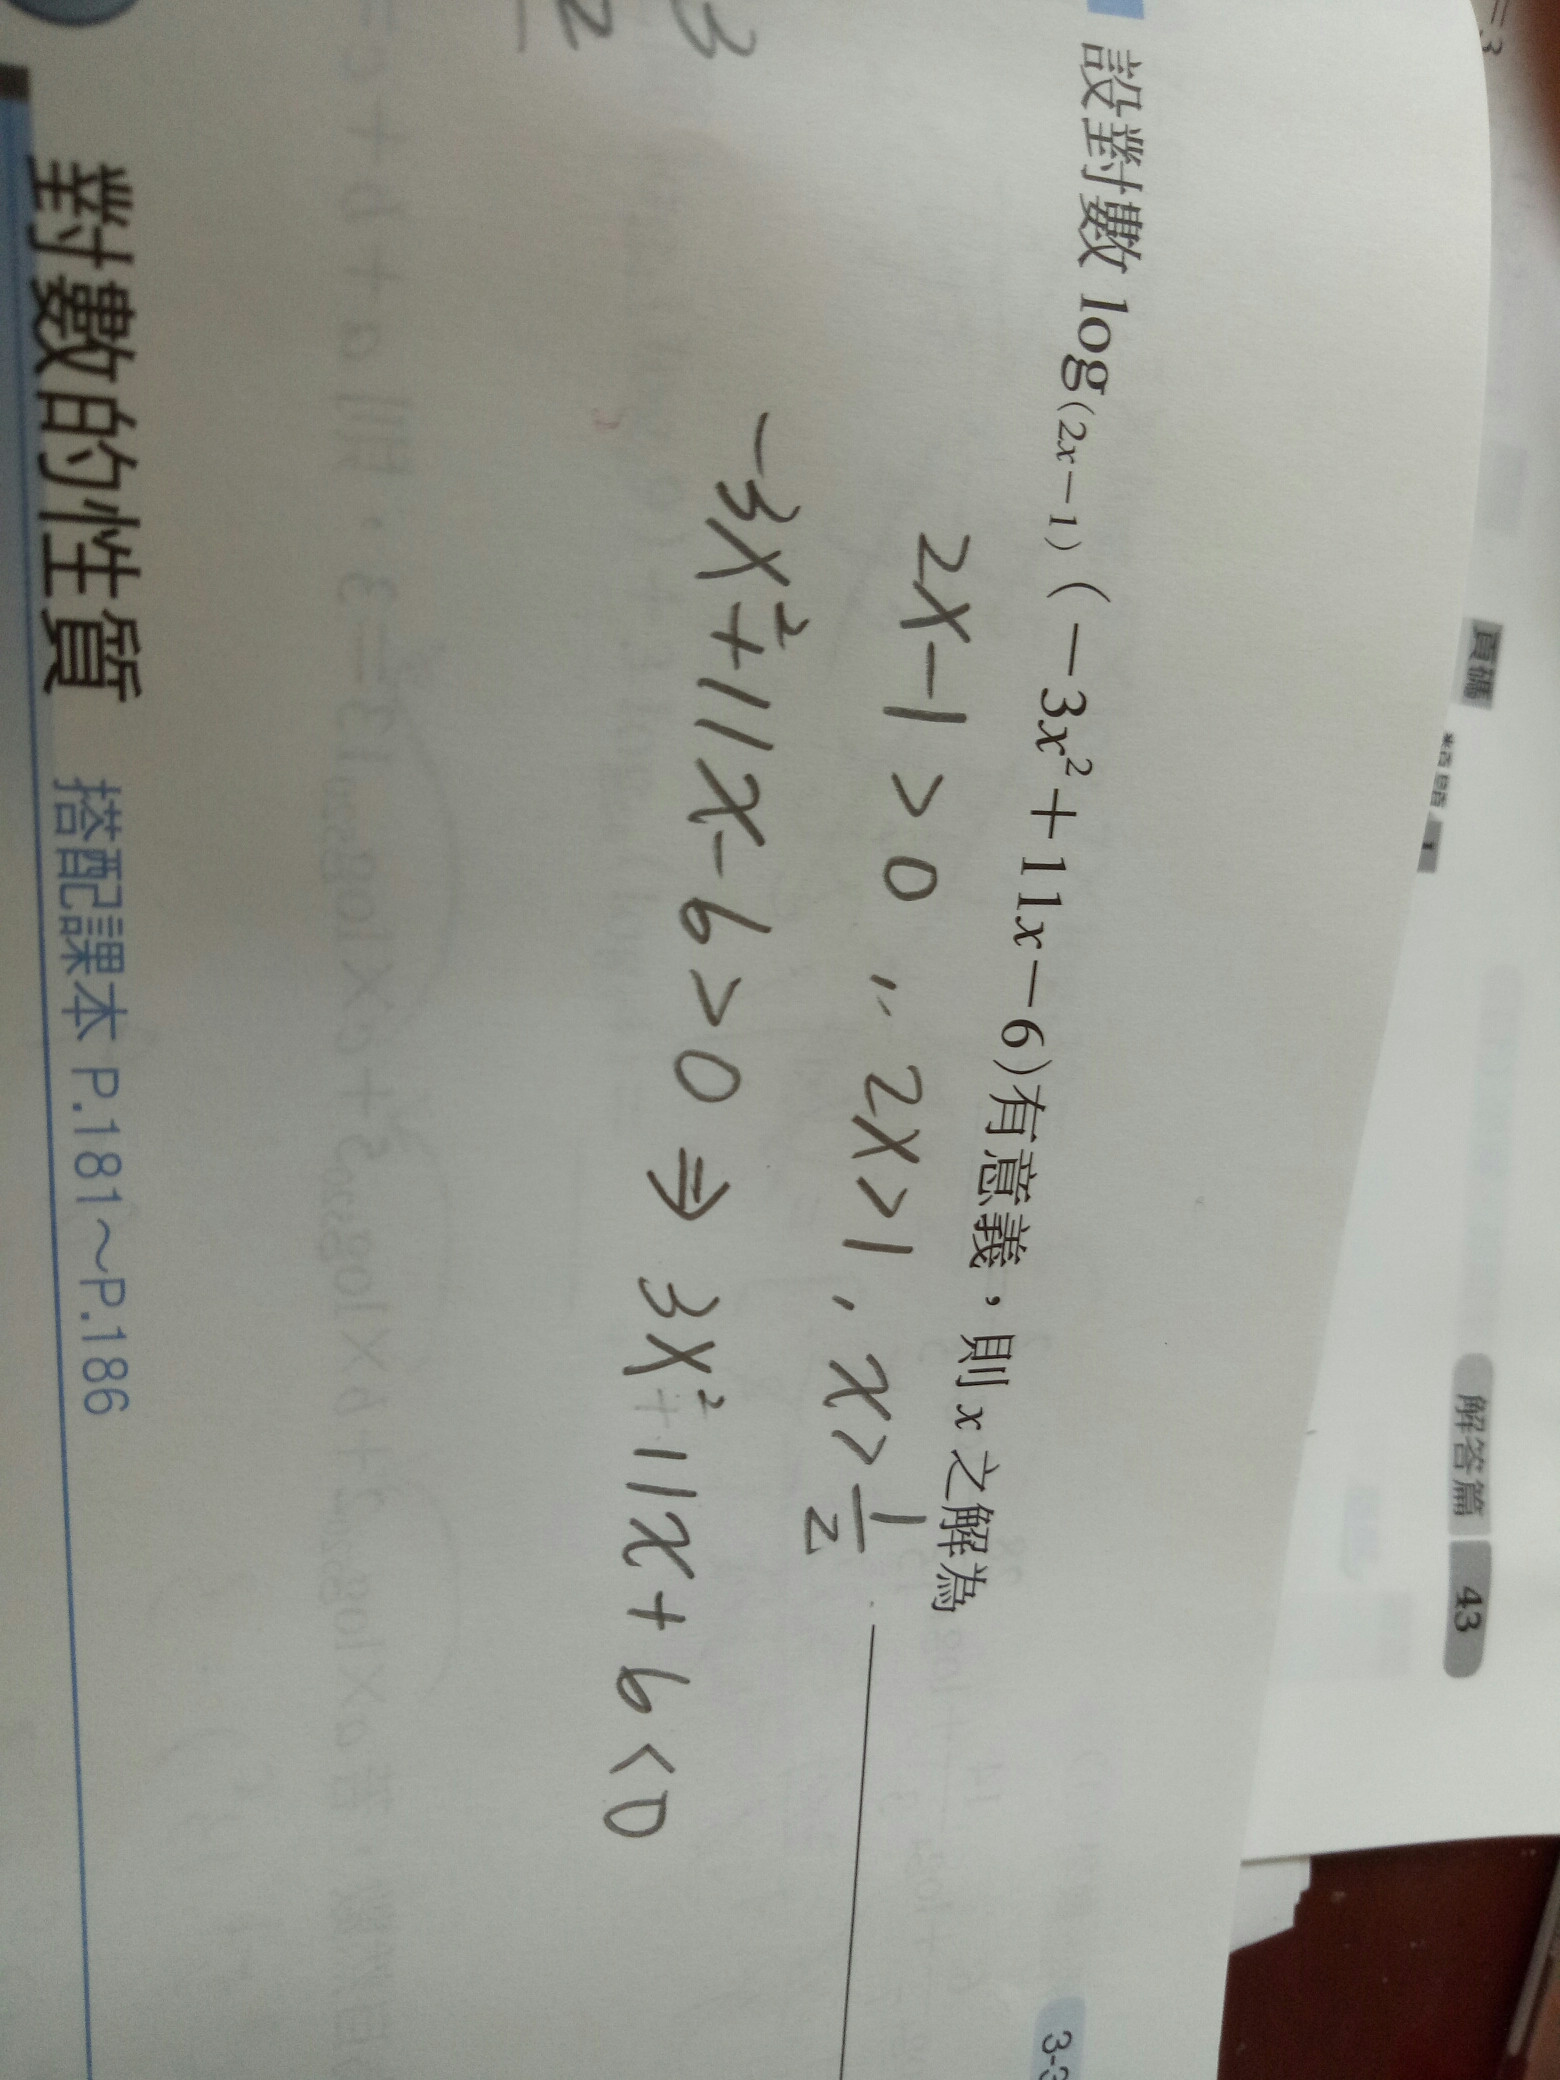 =3
頁碼
解答篇 43
3-3
設對數 log₍₂ₓ₋₁₎(-3x²+11x-6)有意義，則 x 之解為
2x-1>0 ,, 2x>1 , x>1/2
-3x²+11x-6>0 ⇒ 3x²-11x+6<0
3
2
對數的性質 搭配課本 P.181～P.186